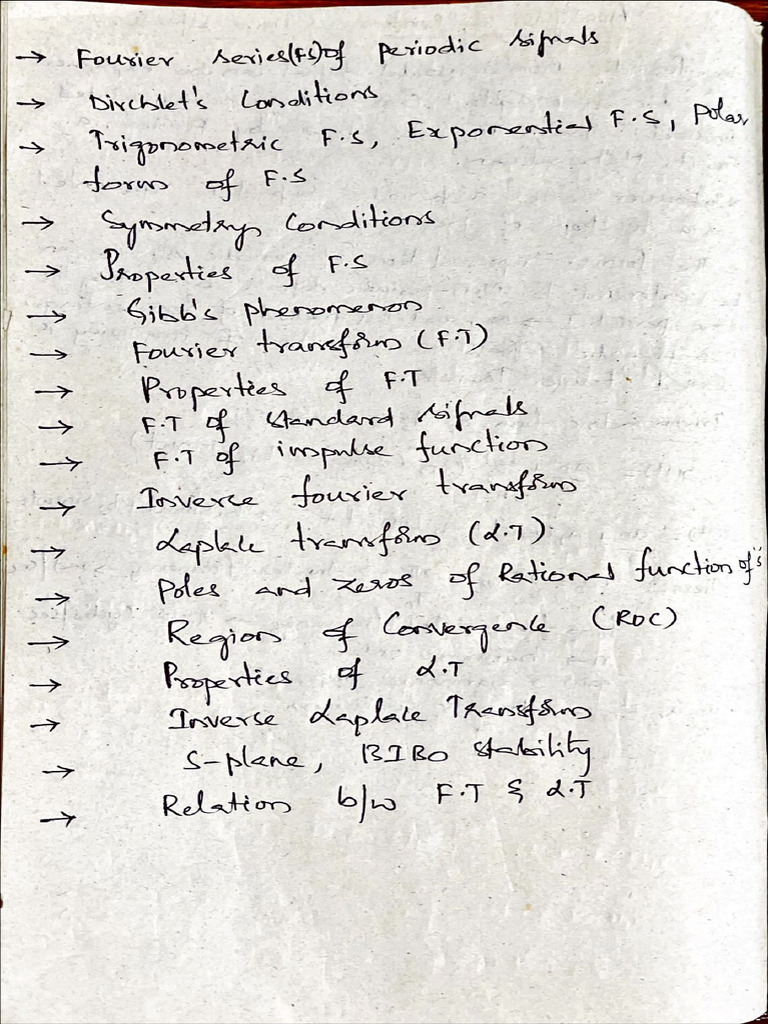 → Fourier series(FS)of periodic signals
→ Dirchlet's Conditions
→ Trigonometric F.S, Exponential F.S, Polar
form of F.S
→ Symmetry Conditions
→ Properties of F.S
→ Gibb's phenomenon
→ Fourier transform (F.T)
→ Properties of F.T
→ F.T of standard signals
→ F.T of impulse function
→ Inverse fourier transform
→ Laplace transform (L.T)
→ Poles and zeros of Rational function of 's'
→ Region of Convergence (ROC)
→ Properties of L.T
→ Inverse Laplace Transform
→ S-plane, BIBO stability
→ Relation b/w F.T & L.T